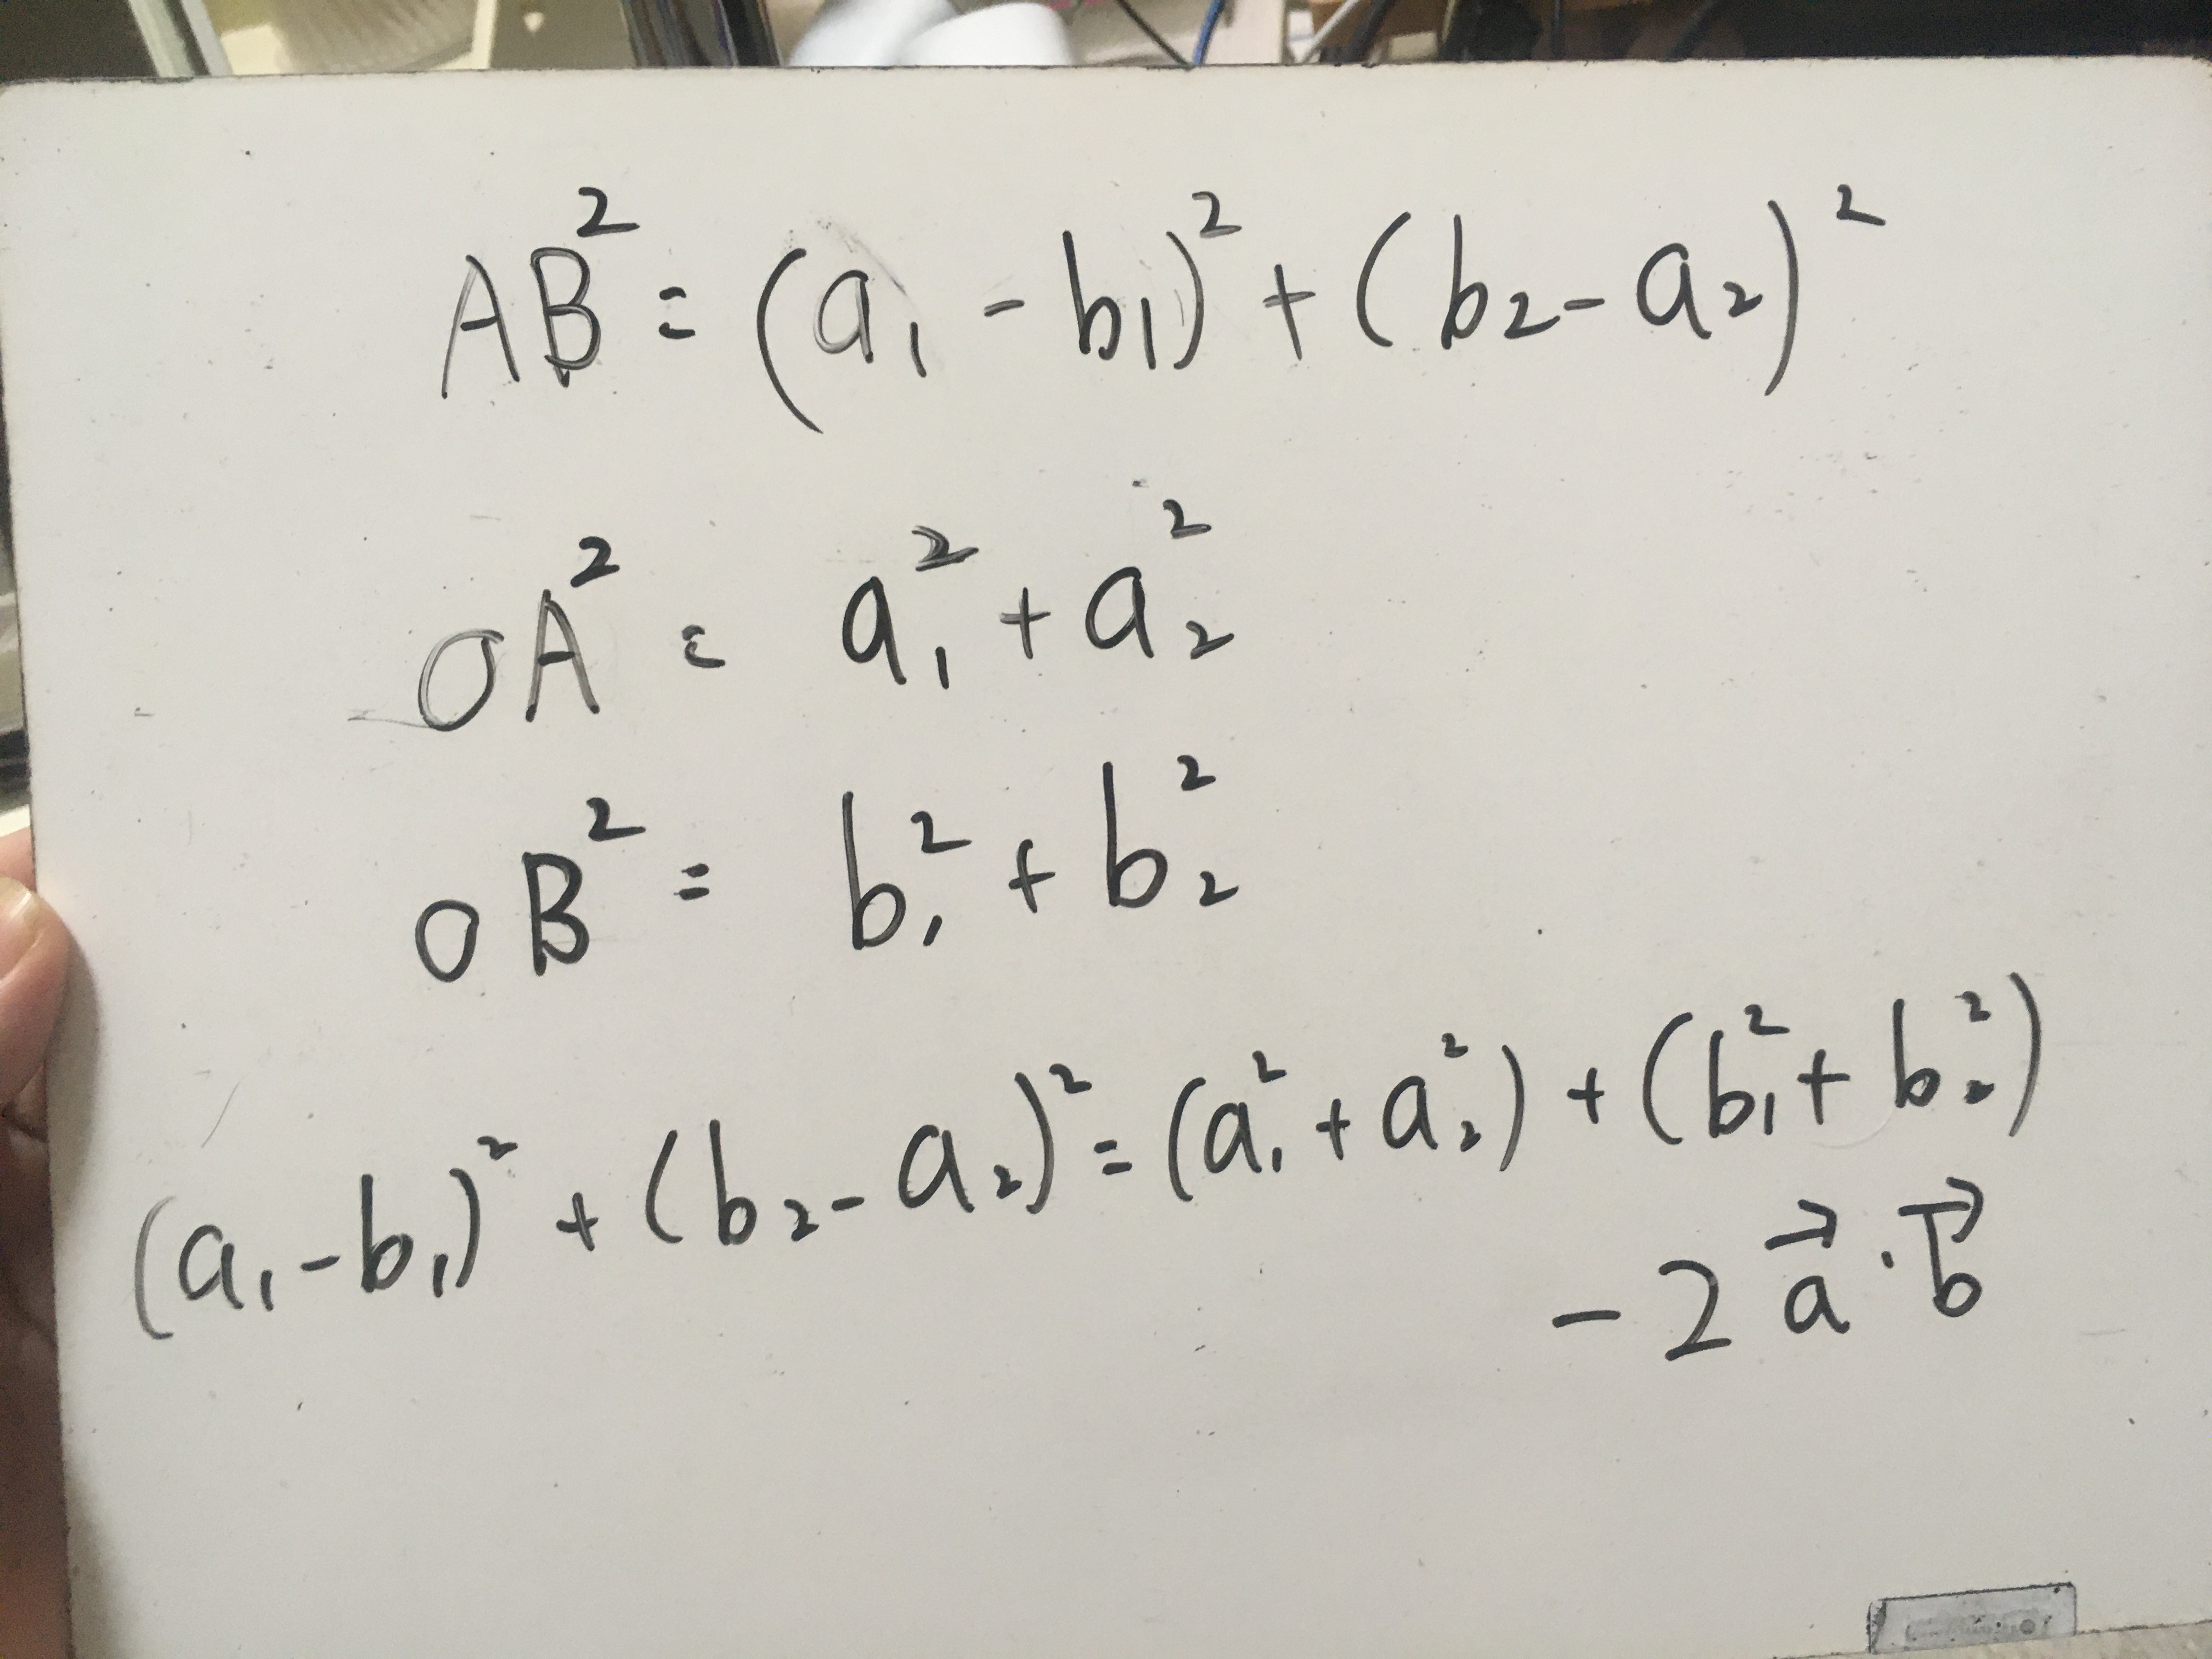 AB² = (a₁ - b₁)² + (b₂ - a₂)²
OA² = a₁² + a₂²
OB² = b₁² + b₂²
(a₁ - b₁)² + (b₂ - a₂)² = (a₁² + a₂²) + (b₁² + b₂²)
- 2 a⃗ · b⃗